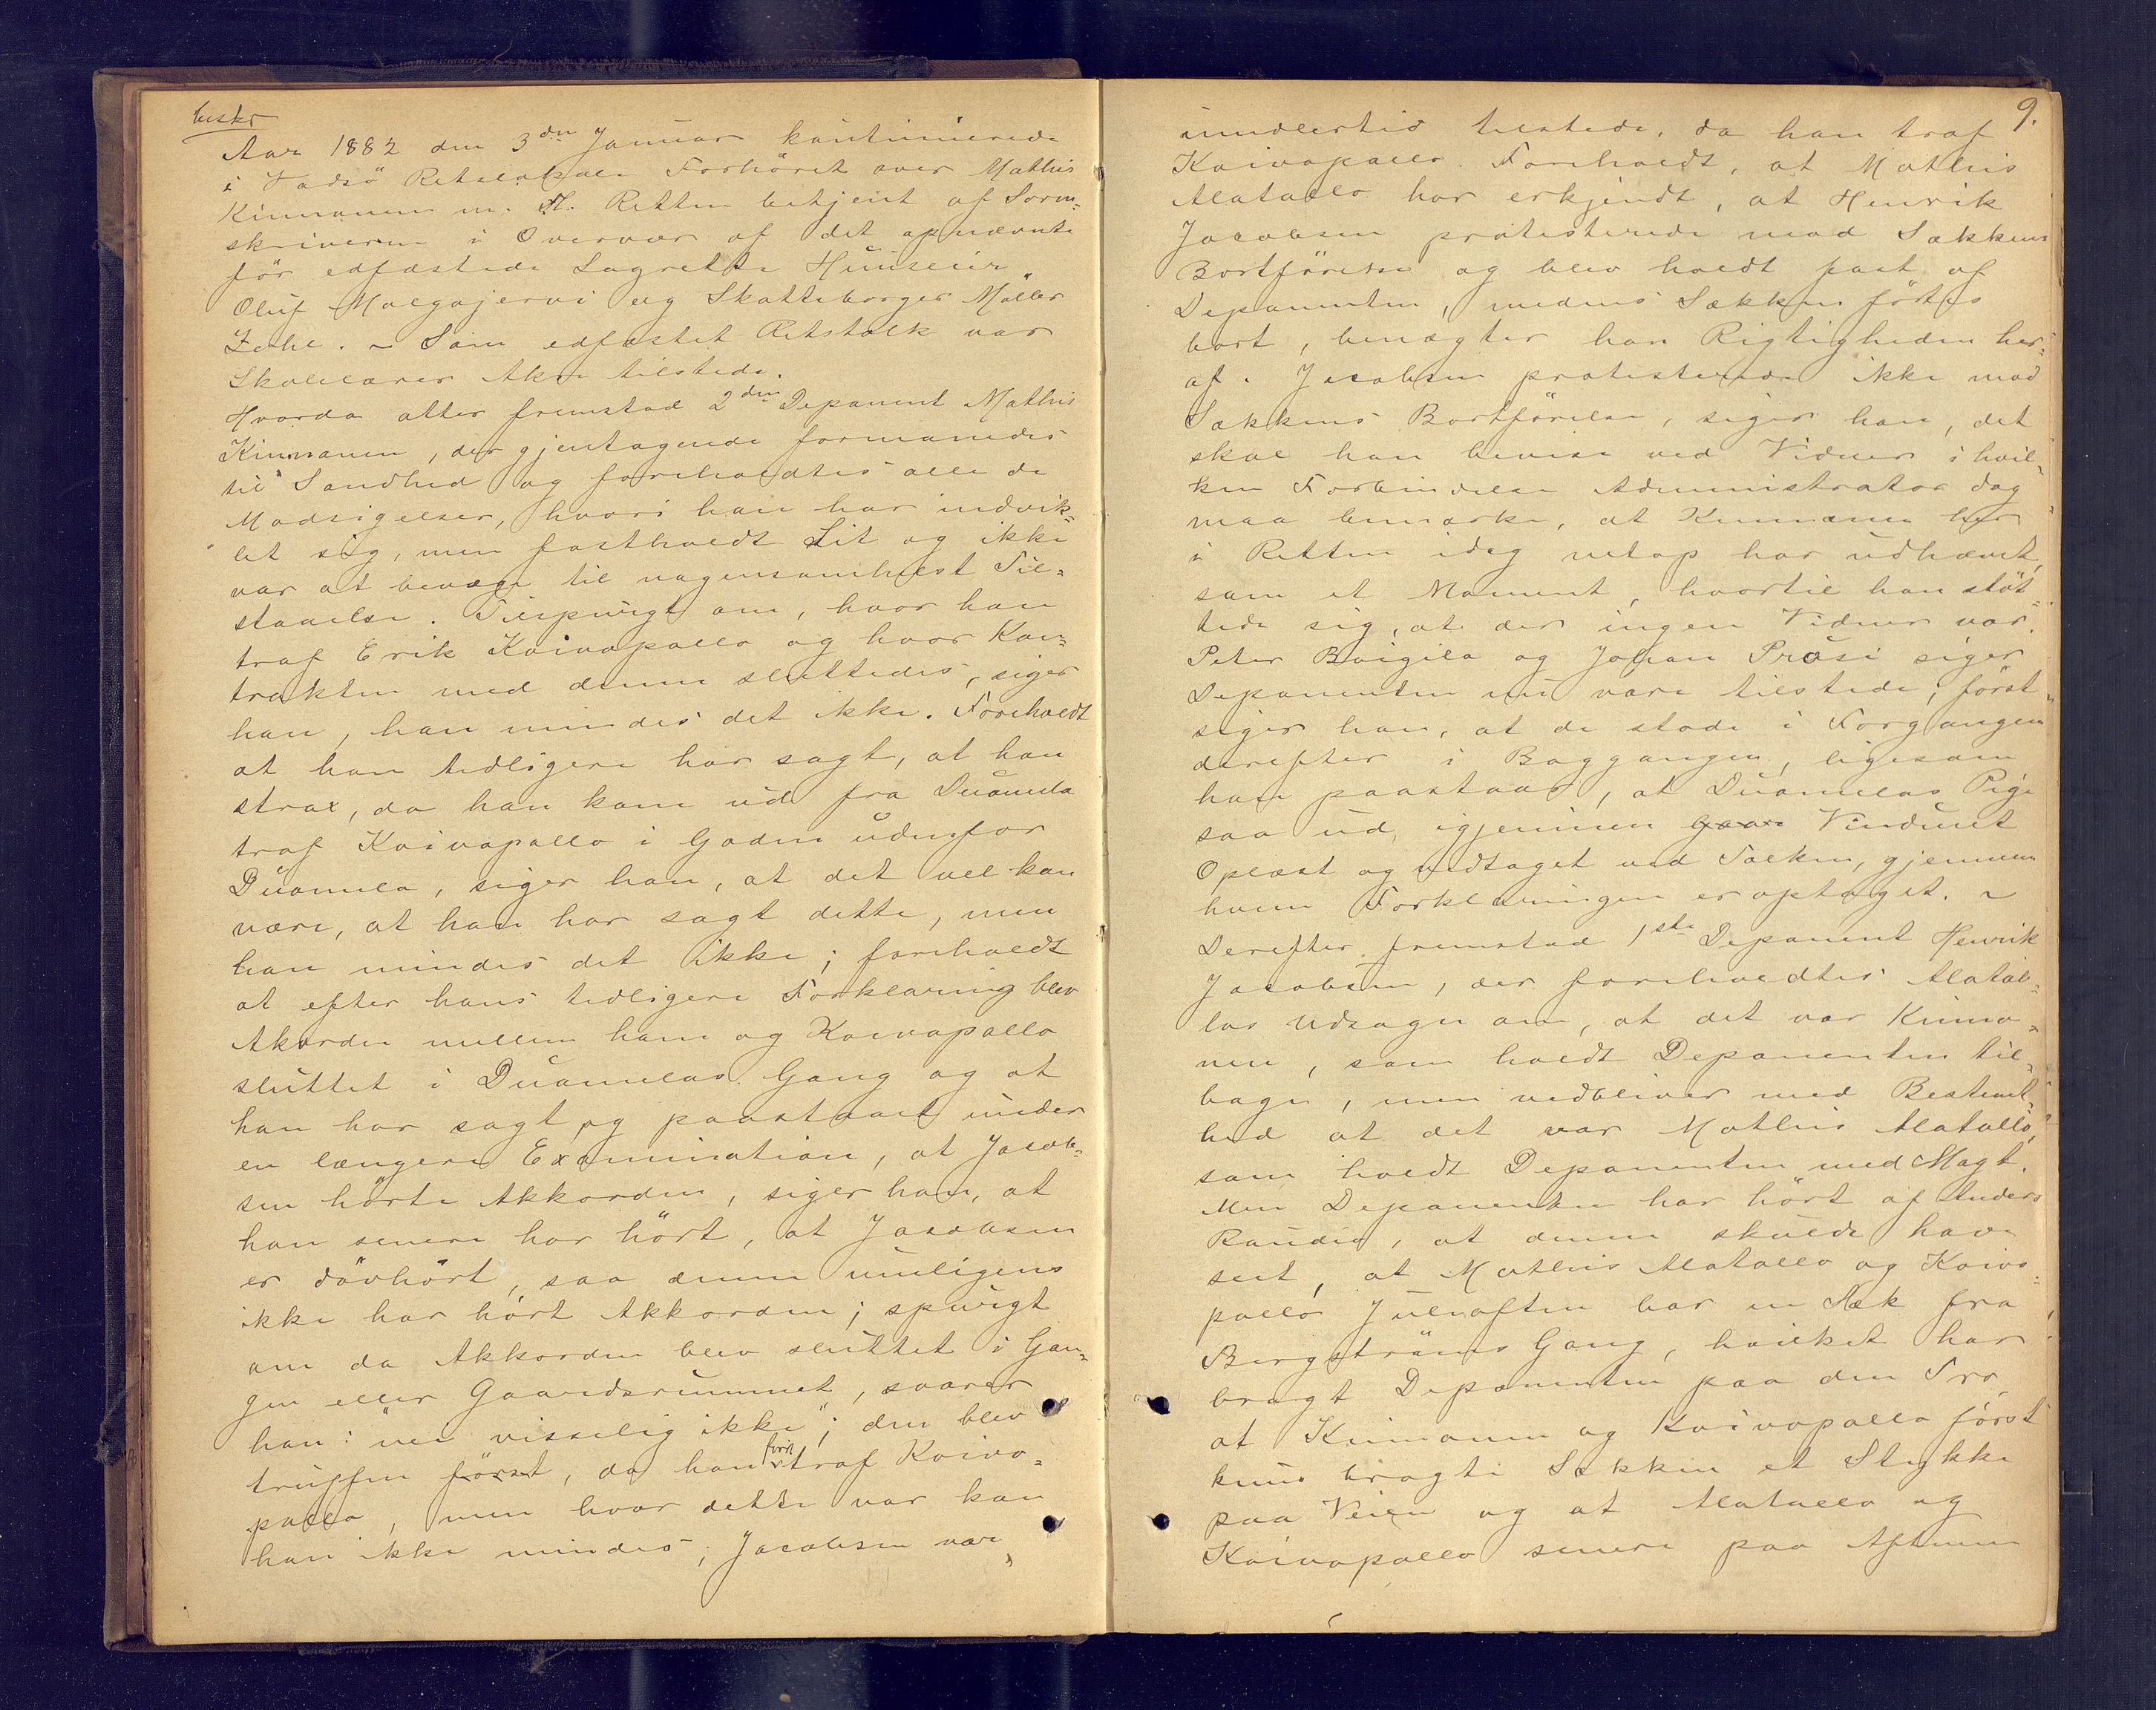 beskr
Aar 1882 den 3die Januar kontinuerede
i Vadsö Retslokale Forhöret over Mathis
Kinnanen m. Fl. Retten betjent af Soren-
skriveren i Overvær af det opnævnte
för edfæstede Lagrette Huuseier
Oluf Malgajervi og Skatteborger Møller
Som edfæstet Retstolk var
Skolelærer Aker tilstede.
Hvorda atter fremstod 2den Deponent Mathis
Kinnanen, der gjentagende formanedes
til Sandhed og foreholdtes alle de
Modsigelser, hvori han har indvik-
let sig, men fastholdt Sit og ikke
var at bevæge til nogensomhelst Til-
staaelse. Tilspurgt om, hvor han
traf Erik Koivopallo og hvor Kon-
trakten med denne sluttedes, siger
han, han mindes det ikke. Foreholdt
at han tidligere har sagt, at han
strax, da han kom ud fra Duomela
traf Koivopallo i Gaden udenfor
Duomela, siger han, at det vel kan
være, at han har sagt dette, men
han mindes det ikke; foreholdt
at efter hans tidligere Forklaring blev
Akorden mellem ham og Koivopallo
sluttet i Duomelas Gang og at
han har sagt og paastaaet under
en længere Examination, at Jacob-
sen hörte Akkorden, siger han, at
han senere har hört, at Jacobsen
er dövhört, saa denne muligens
ikke har hört Akkorden; spurgt
om da Akkorden blev sluttet i Gan-
gen eller Gaardsrummet, svarer
han: "nei visselig ikke"; den blev
truffen först, da han först traf Koivo-
pallo, men hvor dette var kan
han ikke mindes; Jacobsen var
9.
imidlertid tilstede, da han traf
Koivopallo. Foreholdt, at Mathis
Alatallo har erkjendt, at Henrik
Jacobsen protesterede mod Sækkens
Bortförelse og blev holdt fast af
Deponenten, medens Sækken förtes
bort, benægter han Rigtigheden her-
af. Jacobsen protesterede ikke mod
Sækkens Bortförelse, siger han, det
skal han bevise ved Vidner i hvil-
ken Forbindelse Administrator dog
maa bemærke, at Kinnanen her
i Retten idag netop har udhævet,
som et Moment, hvortil han stöt-
tede sig, at der ingen Vidner var.
Peter Boigila og Johan Präsi siger
Deponenten nu vare tilstede; först
siger han, at de stode i Forgangen
derefter i Baggangen, ligesom
han paastaar, at Duomelas Pige
saa ud igjennem Vinduet
Oplæst og vedtaget ved Tolken, gjennem
hvem Forklaringen er optaget. ~
Derefter fremstod 1ste Deponent Henrik
Jacobsen, der foreholdtes Alatal-
los Udsagn om, at det var Kinna-
nen, som holdt Deponenten til-
bage, men vedbliver med Bestemt-
hed at det var Mathis Alatallo,
som holdt Deponenten med Magt.
Men Deponenten har hört af Anders
Raudio, at denne skulde have
seet, at Mathis Alatallo og Koivo-
pallo Juleaften bar en Sæk fra
Bergströms Gang, hvilket har
bragt Deponenten paa den Tro,
at Kinnanen og Koivopallo först
kuns bragte Sækken et Stykke
paa Veien og at Alatallo og
Koivopallo senere paa Aftenen